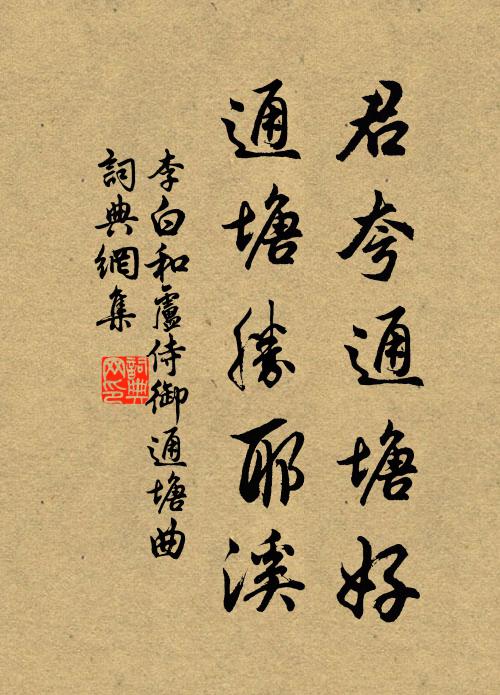 君夸通塘好
通塘勝耶溪
李白和盧侍御通塘曲
詞典網集
詞典
网印